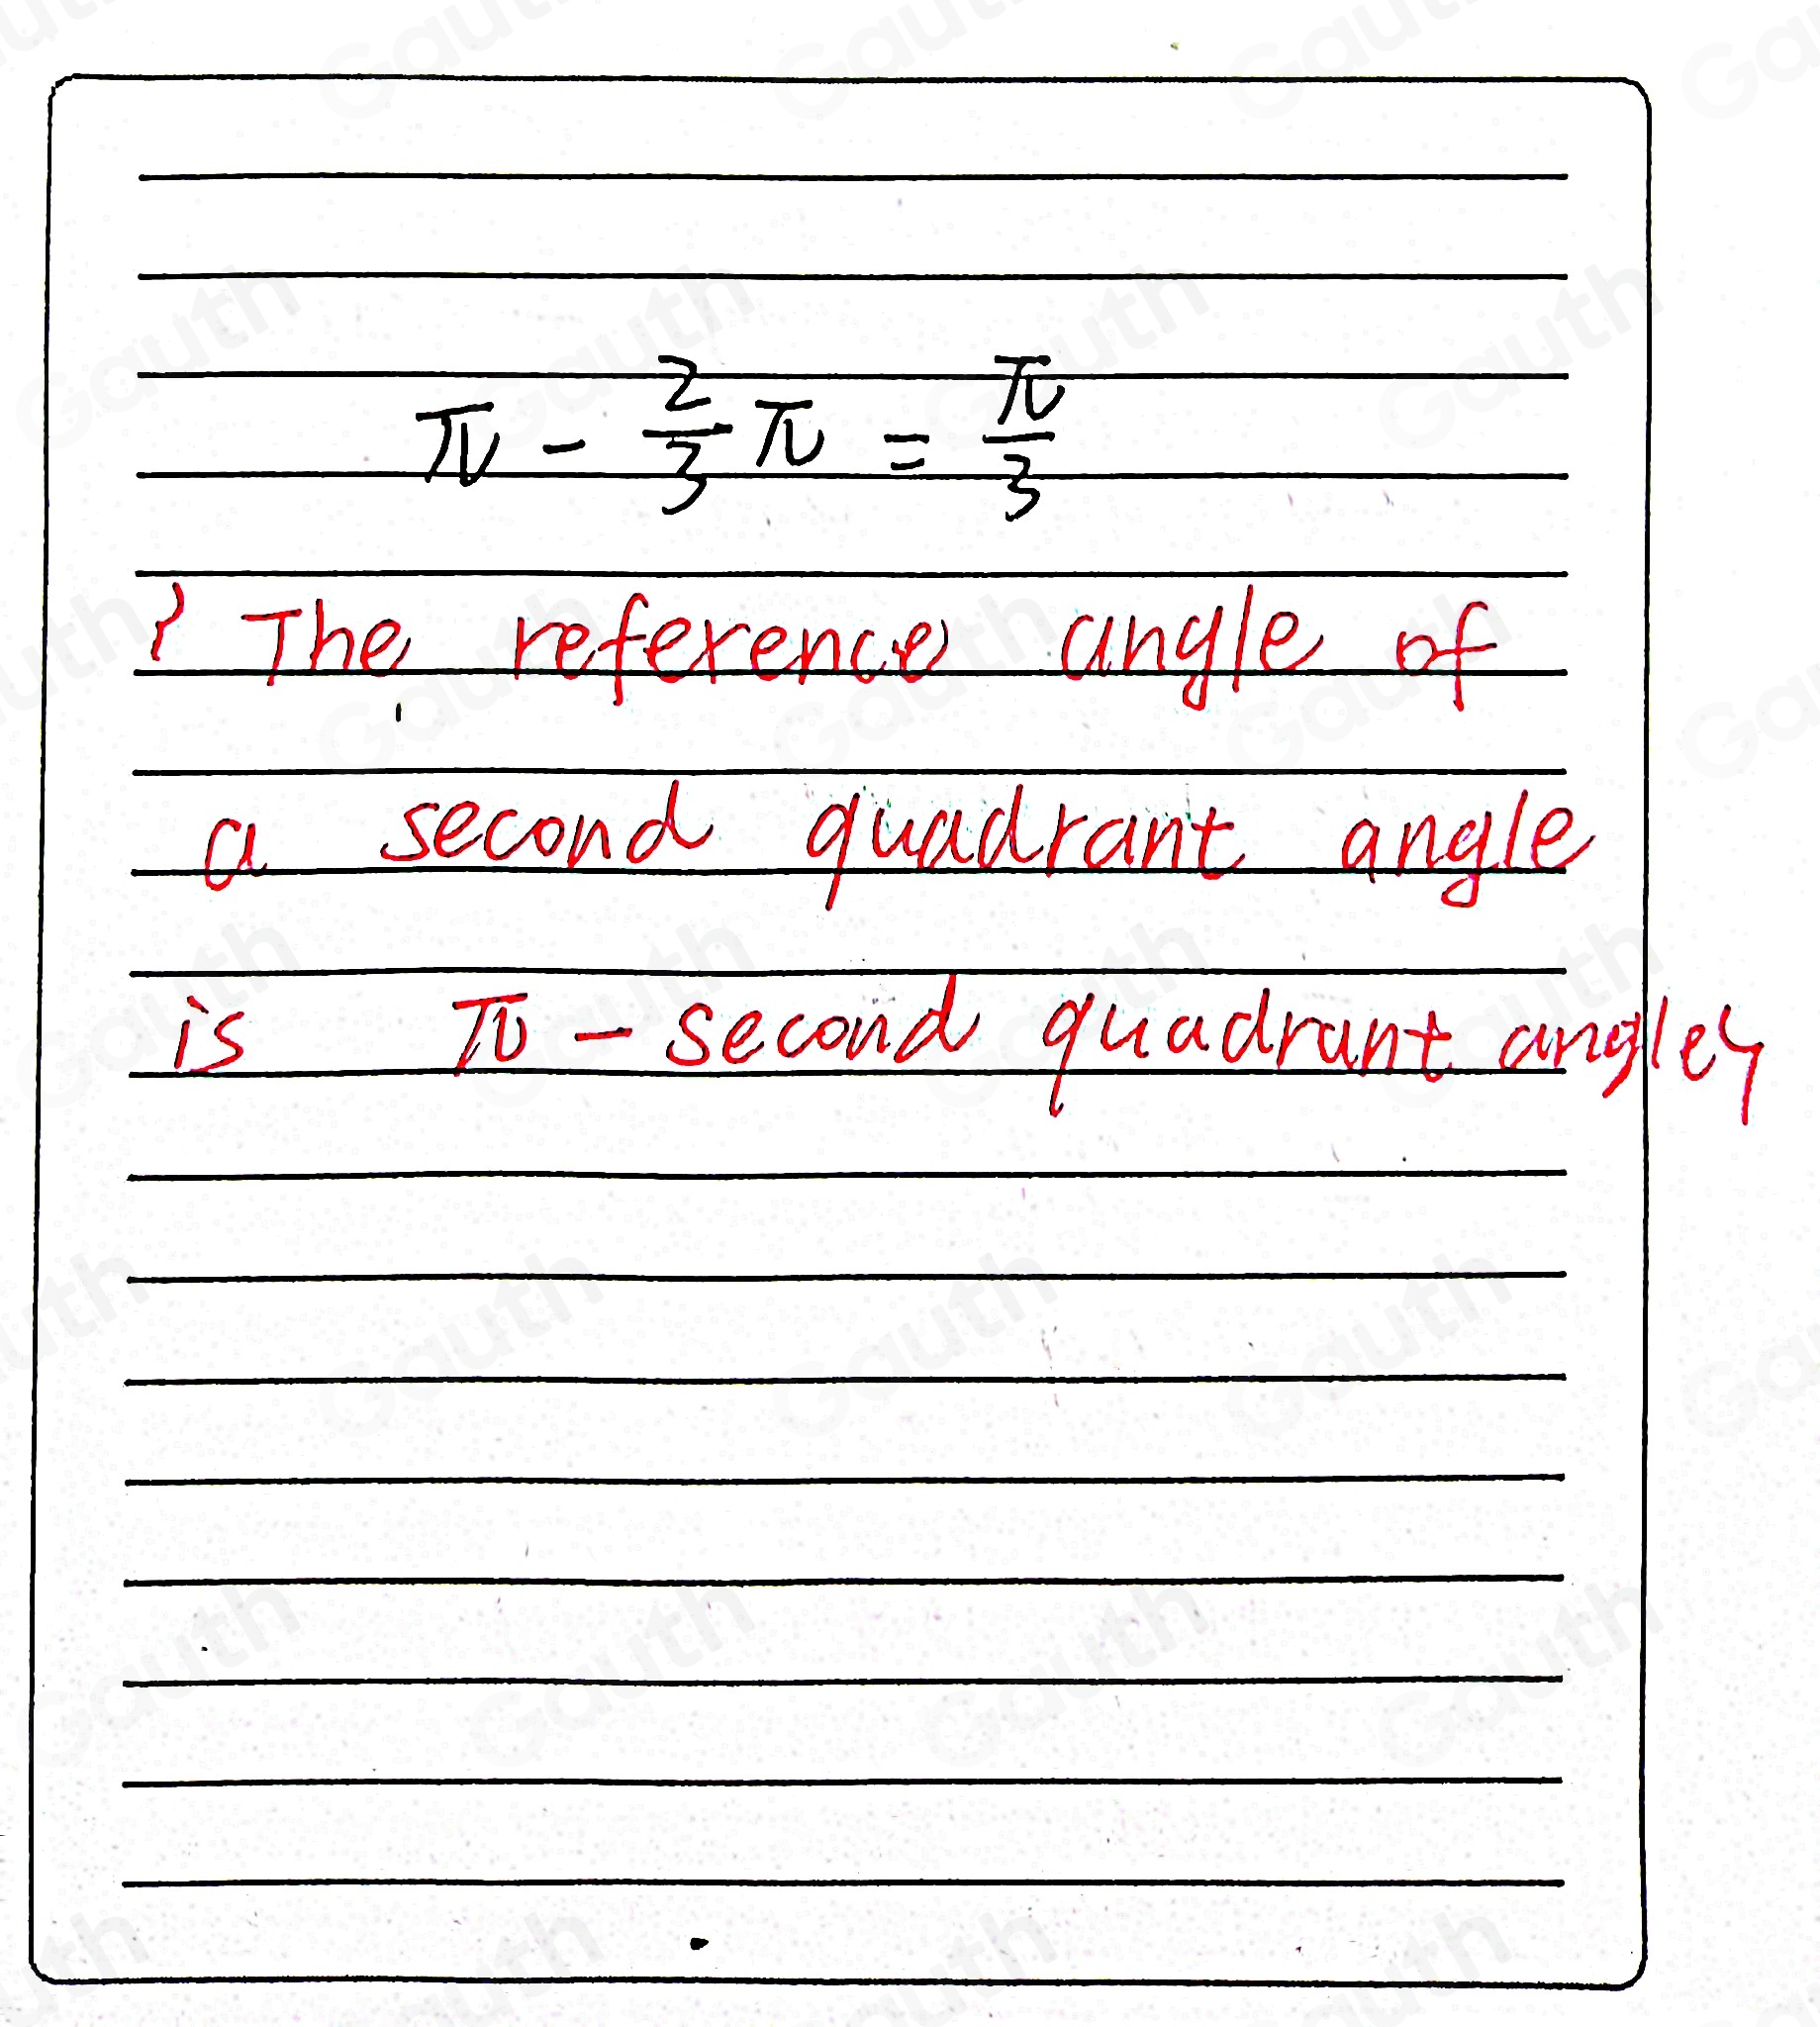 π - 2/3 π = π/3
{ The reference angle of
a second quadrant angle
is π - second quadrant angle}